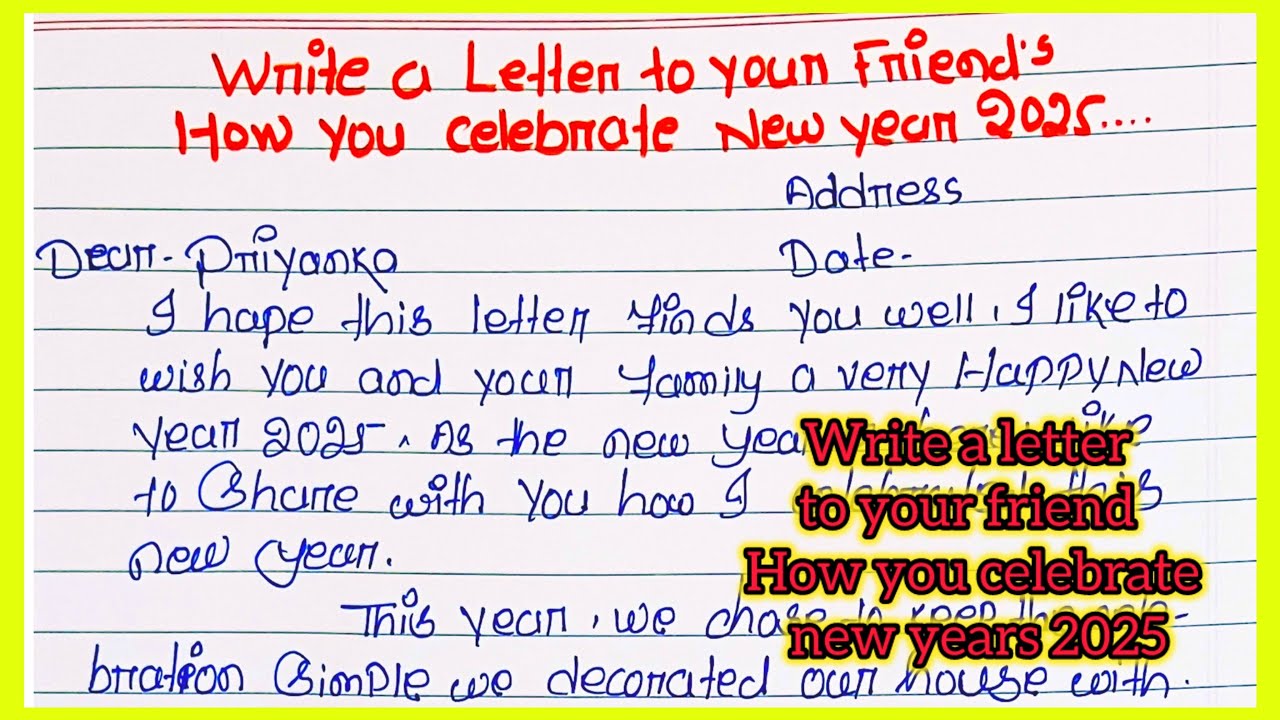 Write a Letter to your Friend's
How you celebrate New year 2025....
Address
Dear- Priyanka
Date-
I hope this letter finds you well. I like to
wish you and your family a very Happy New
Year 2025. As the new year
to share with you how I this
new year.
This year, we to keep the cele-
bration simple we decorated our house with.
Write a letter
to your friend
How you celebrate
new years 2025